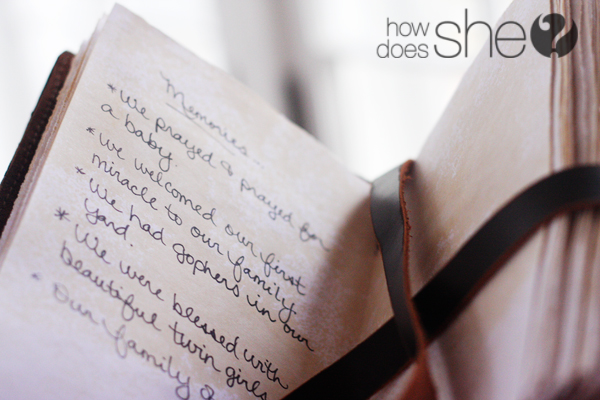 how
does she?
Memories...
* We prayed & prayed for
a baby.
* We welcomed our first
miracle to our family.
* We had gophers in our
yard.
* We were blessed with
beautiful twin girls
* Our family